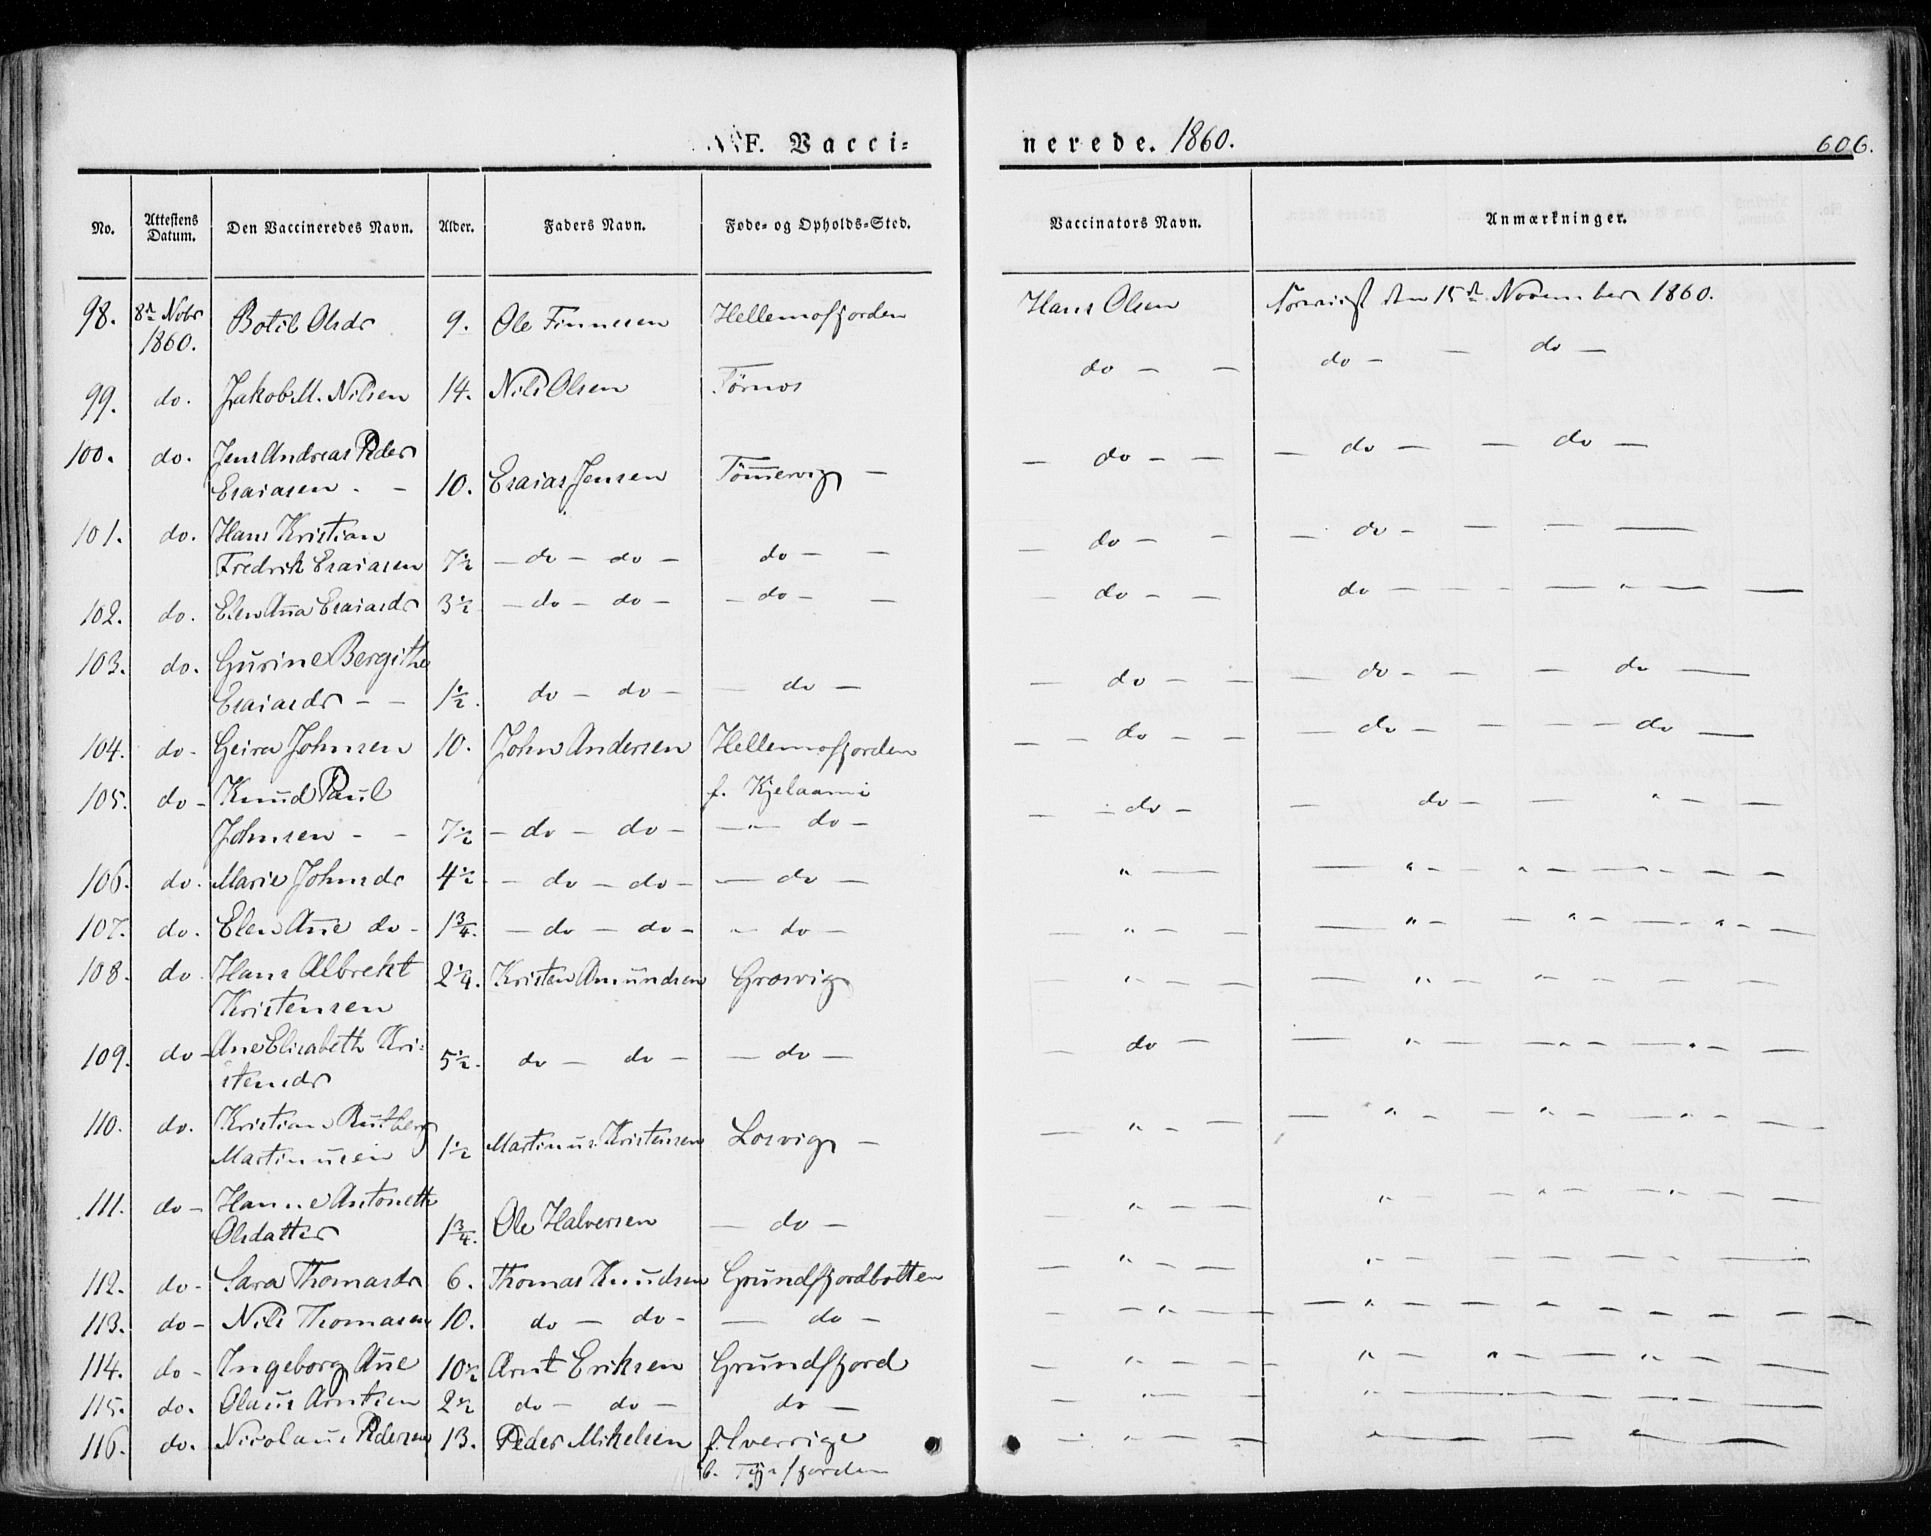 F. Vacci= nerede. 1860. 606.
No. Attestens Datum. Den Vaccineredes Navn. Alder. Faders Navn. Føde- og Opholds-Sted. Vaccinators Navn. Anmærkninger.
98. 8de Nobr 1860. Botil Olsdr 9. Ole Finnesen Hellemofjorden Hans Olsen den 15de November 1860.
99. do. Jakob M. Nilsen 14. Nils Olsen Tørnos do — — do — — do —
100. do. Jens Andreas Peder
Esaiasen . — 10. Esaias Jensen Tömmervig — — do — — — do — — do —
101. do. Hans Kristian
Fredrik Esaiasen 7 1/2 — do — do — do — — — do — — — do — — — —
102. do. Elen Ana Esaiasdr 3 1/2 — do — do — — do — — — do — — do — — — — " — —
103. do. Gurine Bergithe
Esaiasdr — — 1 1/2. do — do — — do — — do — — — do — — — do —
104. do — Geira Johnsen 10. John Andersen Hellemofjorden — — do — — — do — — — — do —
105. do — Knud Paul f. Kjelaami
Johnsen — — 7 1/2 — do — do — — " — do — — — do — — do — — " — —
106. do. Marie Johnsdr 4 1/2 — do — do — — do — " — — " — " — — — — —
107. do. Elen Ane do — 1 3/4. — do — do — — do — — " — — — " — — " — — " —
108. do Hans Albrekt 2 1/4. Kristen Amundsen Grosvig — " — — — " — " — — — —
Kristensen
109. do — Ane Elisabeth Kri-
stensdr 5 1/2. do — do — — do — — do — — " — — " — — " — —
110. do. Kristian
Martinusen 1 1/2 Martinus Kristensen Losvig — — " — — — " — — " — — " — —
111. do — Hanne Antonette
Olsdatter 1 3/4. Ole Halversen — do — — " — — " — — " — — " — —
112. do — Sara Thomasdr 6. Thomas Knudsen Grundfjordbotten — " — — " — — " — — —
113. do — Nils Thomasen 10. do — do — — do — — — " — — — " — — — — — —
114. do — Ingeborg Ane 10 1/2 Arnt Eriksen Grundfjord — " — — — " — " — — " — —
115. do. Olaus Arntsen 2 1/2 do — do — do — — " — — " — — — —
116. do. Nicolaus Pedersen 13. Peder Mikelsen f. Sverrige — " — — " — — " — —
b. Tysfjorden